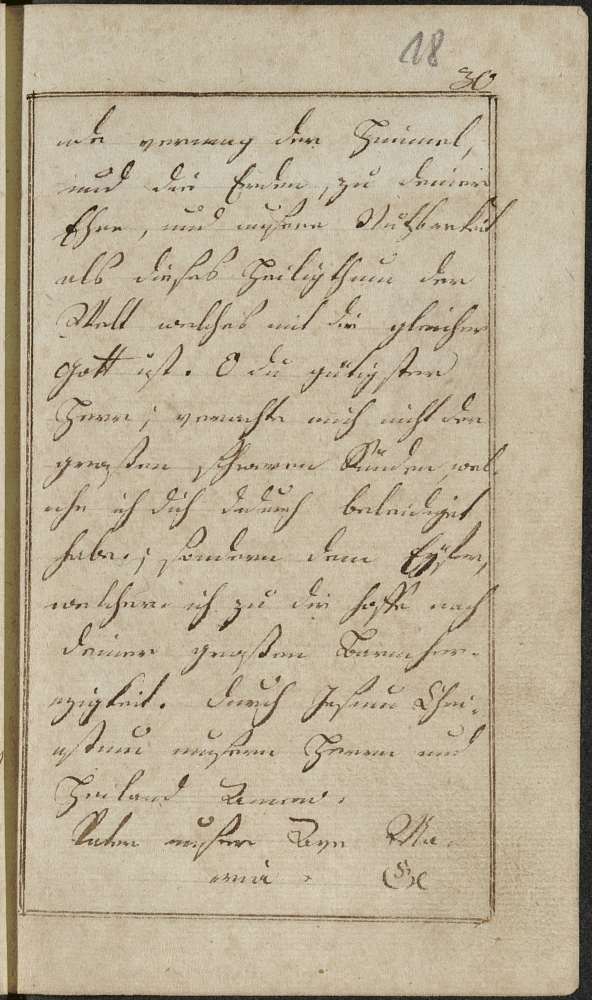 18
30
vermag der Himmel,
und die Erden, zu deiner
Ehre, und unsere Nutzbarkeit
als dieses Heiligthum der
Welt welches mit dir gleicher
Gott ist. O du gütigster
Herr; verachte mich nicht der
großen schweren Sünden wel-
che ich dich dadurch beleidiget
habe; sondern dem Eyfer,
welchen ich zu dir hoffe nach
deiner großen Barmher-
zigkeit. Durch Jesum Chri-
stum unsern Herrn und
Heiland Amen.
Vater unser Ave Ma-
ria.